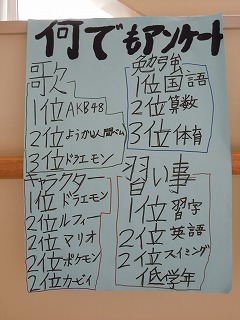 何でもアンケート
歌
1位 AKB48
2位 ようかい人間ベム
3位 ドラエモン
キャラクター
1位 ドラエモン
2位 ルフィー
2位 マリオ
2位 ポケモン
2位 カービィ
勉強
1位 国語
2位 算数
3位 体育
習い事
1位 習字
2位 英語
2位 スイミング
低学年